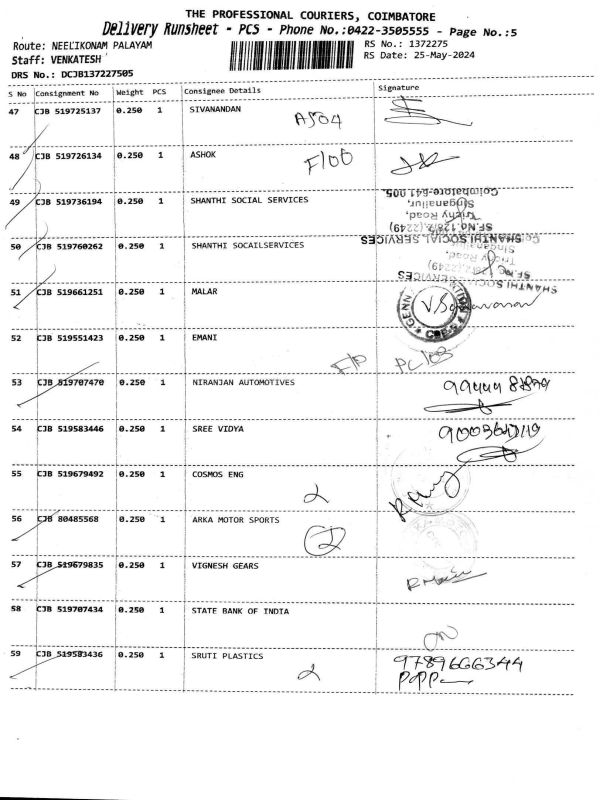 THE PROFESSIONAL COURIERS, COIMBATORE
Delivery Runsheet - PCS - Phone No.:0422-3505555 - Page No.:5
Route: NEELIKONAM PALAYAM
RS No.: 1372275
Staff: VENKATESH
RS Date: 25-May-2024
DRS No.: DCJB137227505
S No Consignment No Weight PCS Consignee Details Signature
47 CJB 519725137 0.250 1 SIVANANDAN A504
48 CJB 519726134 0.250 1 ASHOK F100
49 CJB 519736194 0.250 1 SHANTHI SOCIAL SERVICES
Coimbatore-641 005
Singanallur,
Trichy Road,
SF.No.128/2,(2249)
SHANTHI SOCIAL SERVICES
50 CJB 519760262 0.250 1 SHANTHI SOCAILSERVICES
Singanallur
Trichy Road,
51 CJB 519661251 0.250 1 MALAR
52 CJB 519551423 0.250 1 EMANI
53 CJB 519707470 0.250 1 NIRANJAN AUTOMOTIVES
54 CJB 519583446 0.250 1 SREE VIDYA
55 CJB 519679492 0.250 1 COSMOS ENG 2
56 CJB 80485568 0.250 1 ARKA MOTOR SPORTS 2
57 CJB 519679835 0.250 1 VIGNESH GEARS
58 CJB 519707434 0.250 1 STATE BANK OF INDIA
59 CJB 519583436 0.250 1 SRUTI PLASTICS 2 9789666344